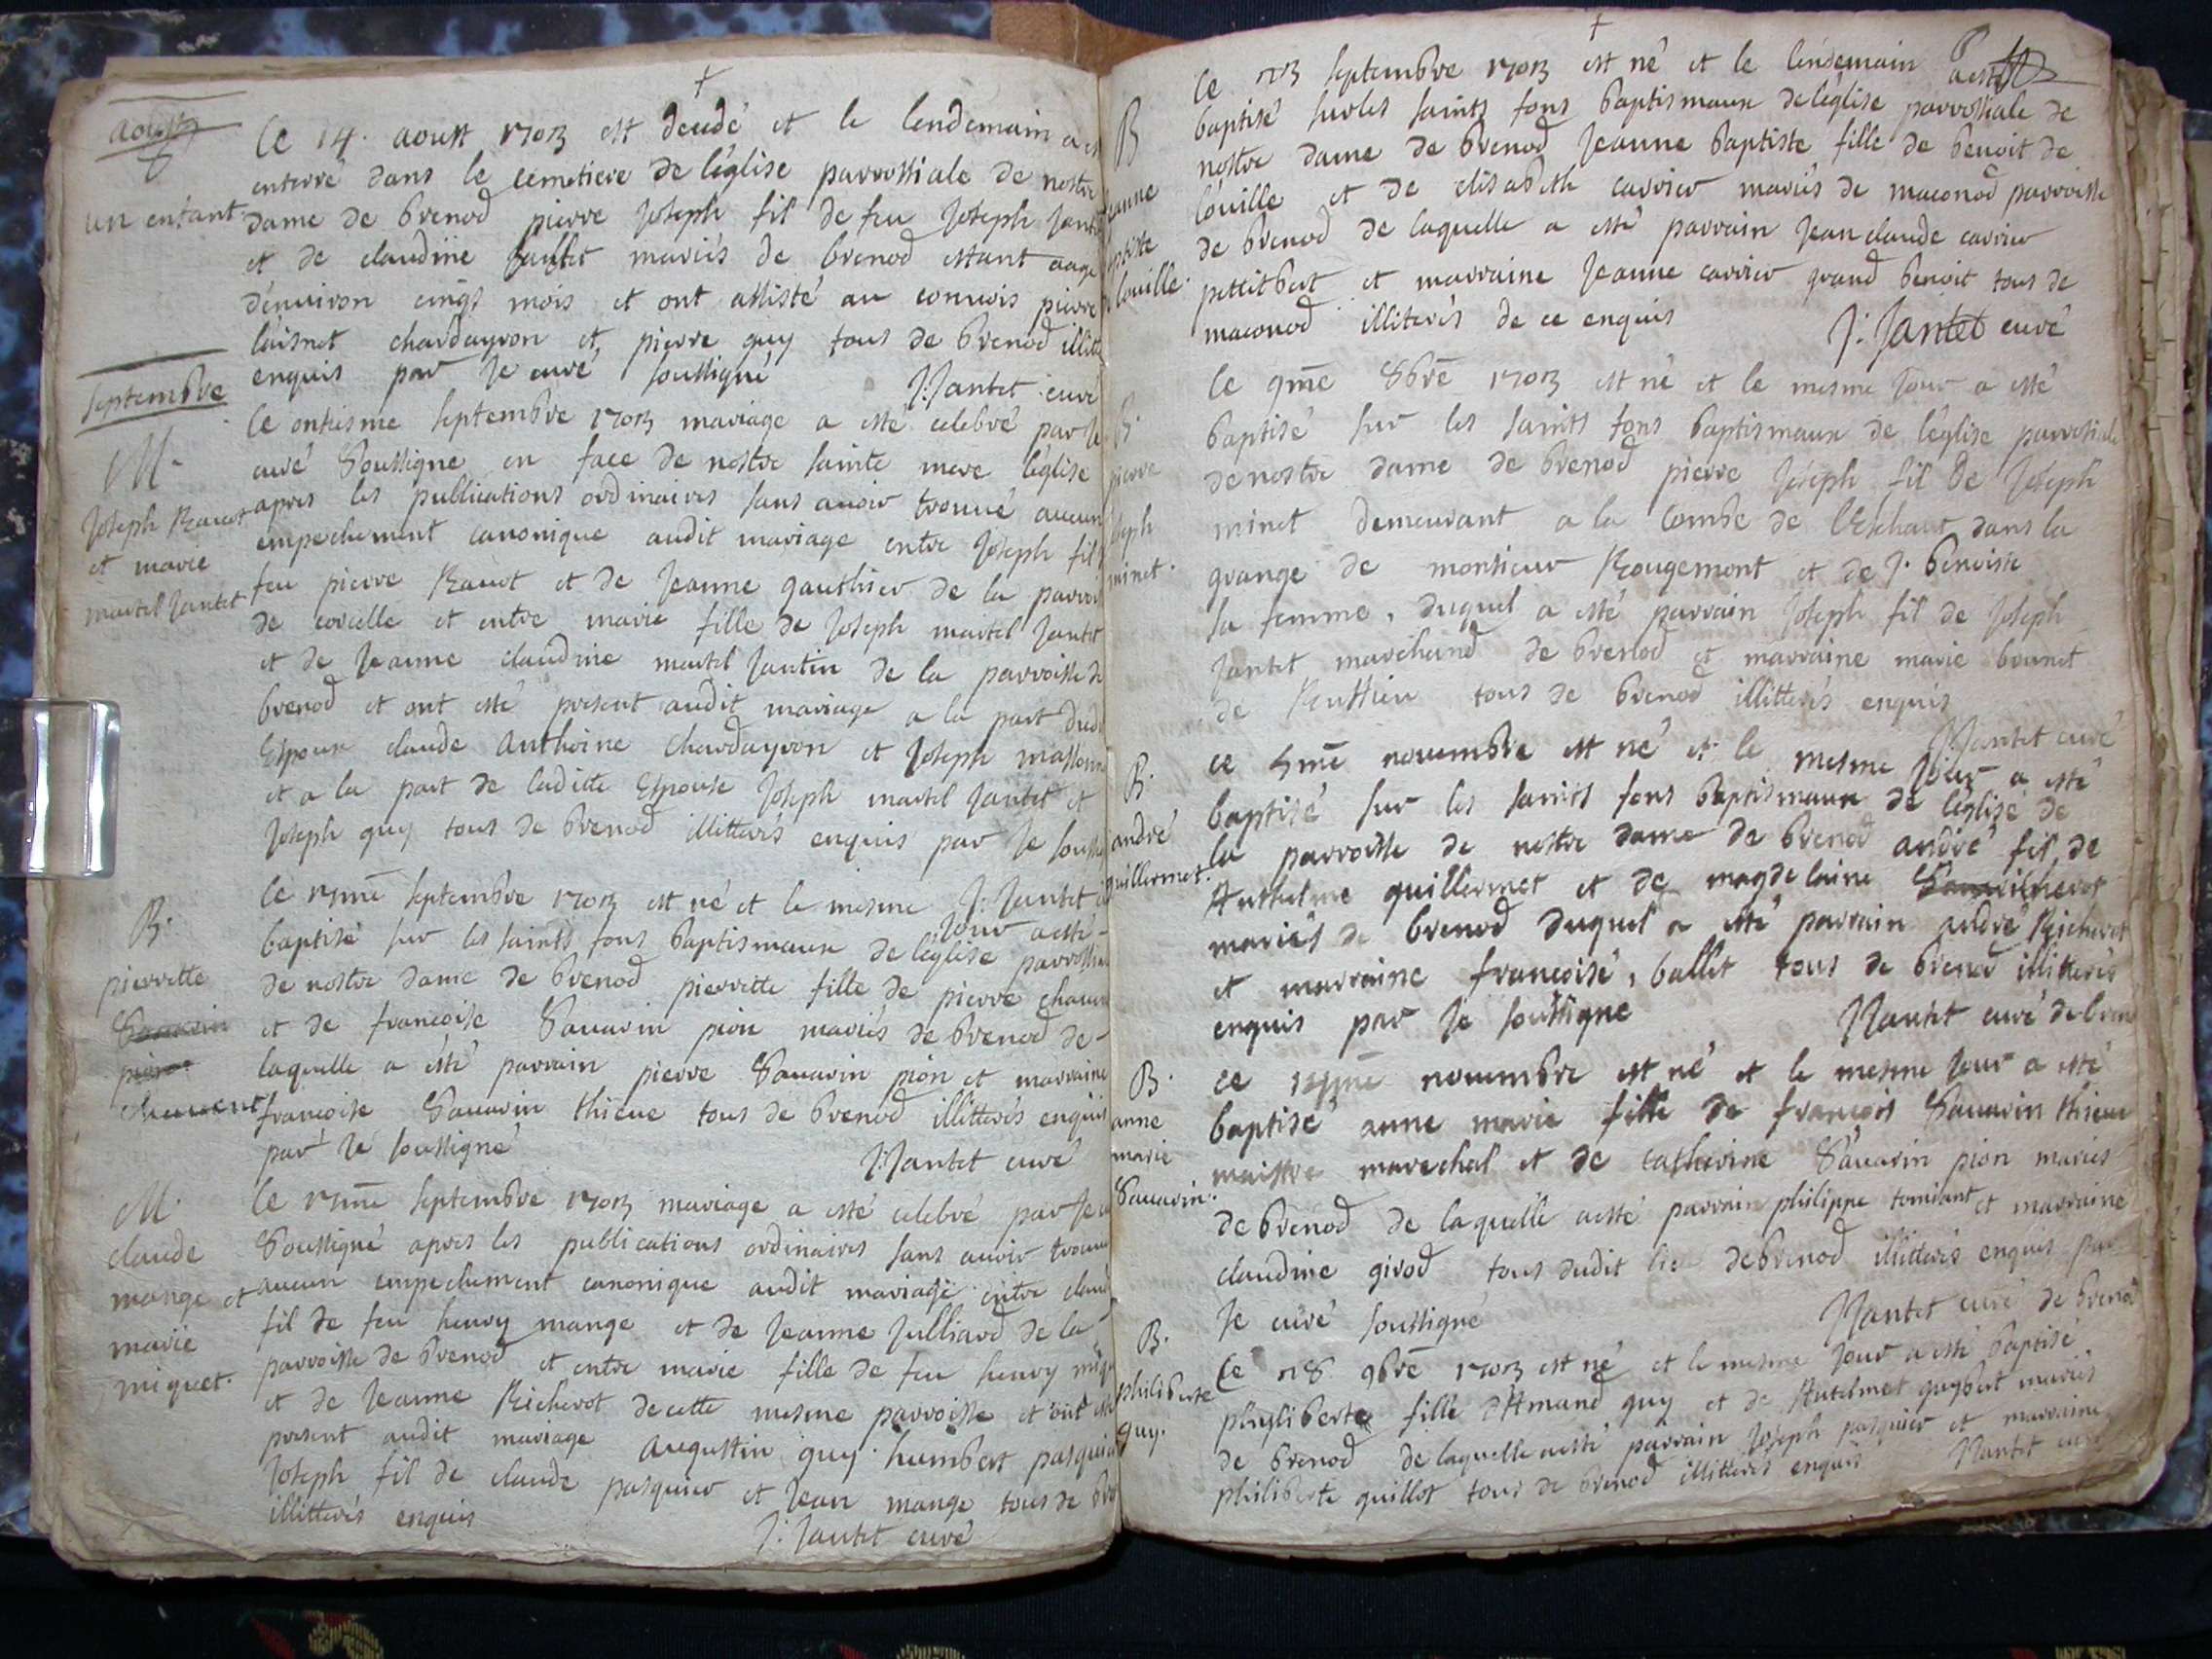 aoust
un enfant
Ce 14. aoust 1703 est decedé et le lendemain a
enterré dans le cemetiere de l'église parrossiale de nostre
dame de brenod pierre joseph fil de feu Joseph Jant
et de claudine ballet mariés de brenod estant aagé
d'enuiron cinqs mois et ont assisté au conuois pierre
chardeyron et pierre guy tous de brenod illitt
enquis par Je curé soussigné J: Jantet curé
septembre
M.
Joseph Rauot
et marie
martel Jantet
Ce onsiesme septembre 1703 mariage a esté celebré par Je
curé Soussigne en face de nostre sainte mere l'église
apres les publications ordinaires sans auoir trouué aucun
empechement canonique audit mariage entre Joseph fil
feu pierre Rauot et de Jeanne gauthier de la parroi
de corcelle et entre marie fille de Joseph martel Jantet
et de Jeanne claudine martel Jantin de la parroisse de
brenod et ont esté present audit mariage a la part dud
Espoux claude Anthoine chardeyron et Joseph masson
et a la part de laditte Espouse Joseph martel Jantet et
Joseph guy tous de brenod illitterés enquis par Je souss
J: Jantet
B.
pierrette
Sauarin
pion
Ce septembre 1703 est né et le mesme Jour a esté
baptisé sur les saints fons baptismaux de l'église parrossi
de nostre dame de brenod pierrette fille de pierre
et de francoise Sauarin pion mariés de brenod de
laquelle a esté parrain pierre Sauarin pion et marraine
francoise Sauarin thieue tous de brenod illitterés enquis
par Je soussigné J: Jantet curé
M.
claude
mange et
marie
miquet.
Ce septembre 1703 mariage a esté celebré par Je
Soussigné apres les publications ordinaires sans auoir trouué
aucun empechement canonique audit mariage entre claud
fil de feu henry mange et de Jeanne Julliard de la
parroisse de brenod et entre marie fille de feu henry miq
et de Jeanne Richerot de cette mesme parroisse et ont esté
present audit mariage Augustin guy humbert pasquie
Joseph fil de claude pasquier et Jean mange tous de bre
illitterés enquis J: Jantet curé
B
louille.
Ce septembre 1703 est né et le lendemain a esté
baptisé sur les saints fons baptismaux de l'église parrossiale de
nostre dame de brenod Jeanne baptiste fille de benoit de
louille et de elisabeth carrier mariés de maconod parroisse
de brenod de laquelle a esté parrain Jean claude carrier
pettitbert et marraine Jeanne carrier grand benoit tous de
maconod illiterés de ce enquis J: Jantet curé
B.
pierre
Joseph
minet.
Ce 9me 8bre 1703 est né et le mesme Jour a esté
baptisé sur les saints fons baptismaux de l'église parrossiale
de nostre dame de brenod pierre Joseph fil de Joseph
minet demeurant a la combe de dans la
grange de monsieur Rougemont et de J. benoiste
sa femme, duquel a esté parrain Joseph fil de Joseph
Jantet marchand de brenod et marraine marie brunet
de Ruffieu tous de brenod illitterés enquis
J Jantet curé
B.
andré
guillermet.
Ce 5me nouembre est né et le mesme Jour a esté
baptisé sur les saints fons baptismaux de l'église de
la parroisse de nostre dame de brenod andré fil de
Anthelme guillermet et de magdelaine
mariés de brenod duquel a esté parrain andré Richerot
et marraine francoise, ballet tous de brenod illitterés
enquis par Je soussigne J Jantet curé de bren
B.
anne
marie
Sauarin.
Ce nouembre est né et le mesme Jour a esté
baptisé anne marie fille de francois Sauarin thieue
maistre marechal et de catherine Sauarin pion mariés
de brenod de laquelle a esté parrain philippe tomiant et marraine
claudine girod tous dudit lieu de brenod illitterés enquis par
Je curé soussigné J Jantet curé de brenod
B.
philiberte
guy.
Ce 9bre 1703 est né et le mesme Jour a esté baptisé
phyliberte fille d'Amand guy et de Antelmet guybert mariés
de brenod de laquelle a esté parrain Joseph pasquier et marraine
philiberte guillot tous de brenod illitterés enquis J Jantet curé